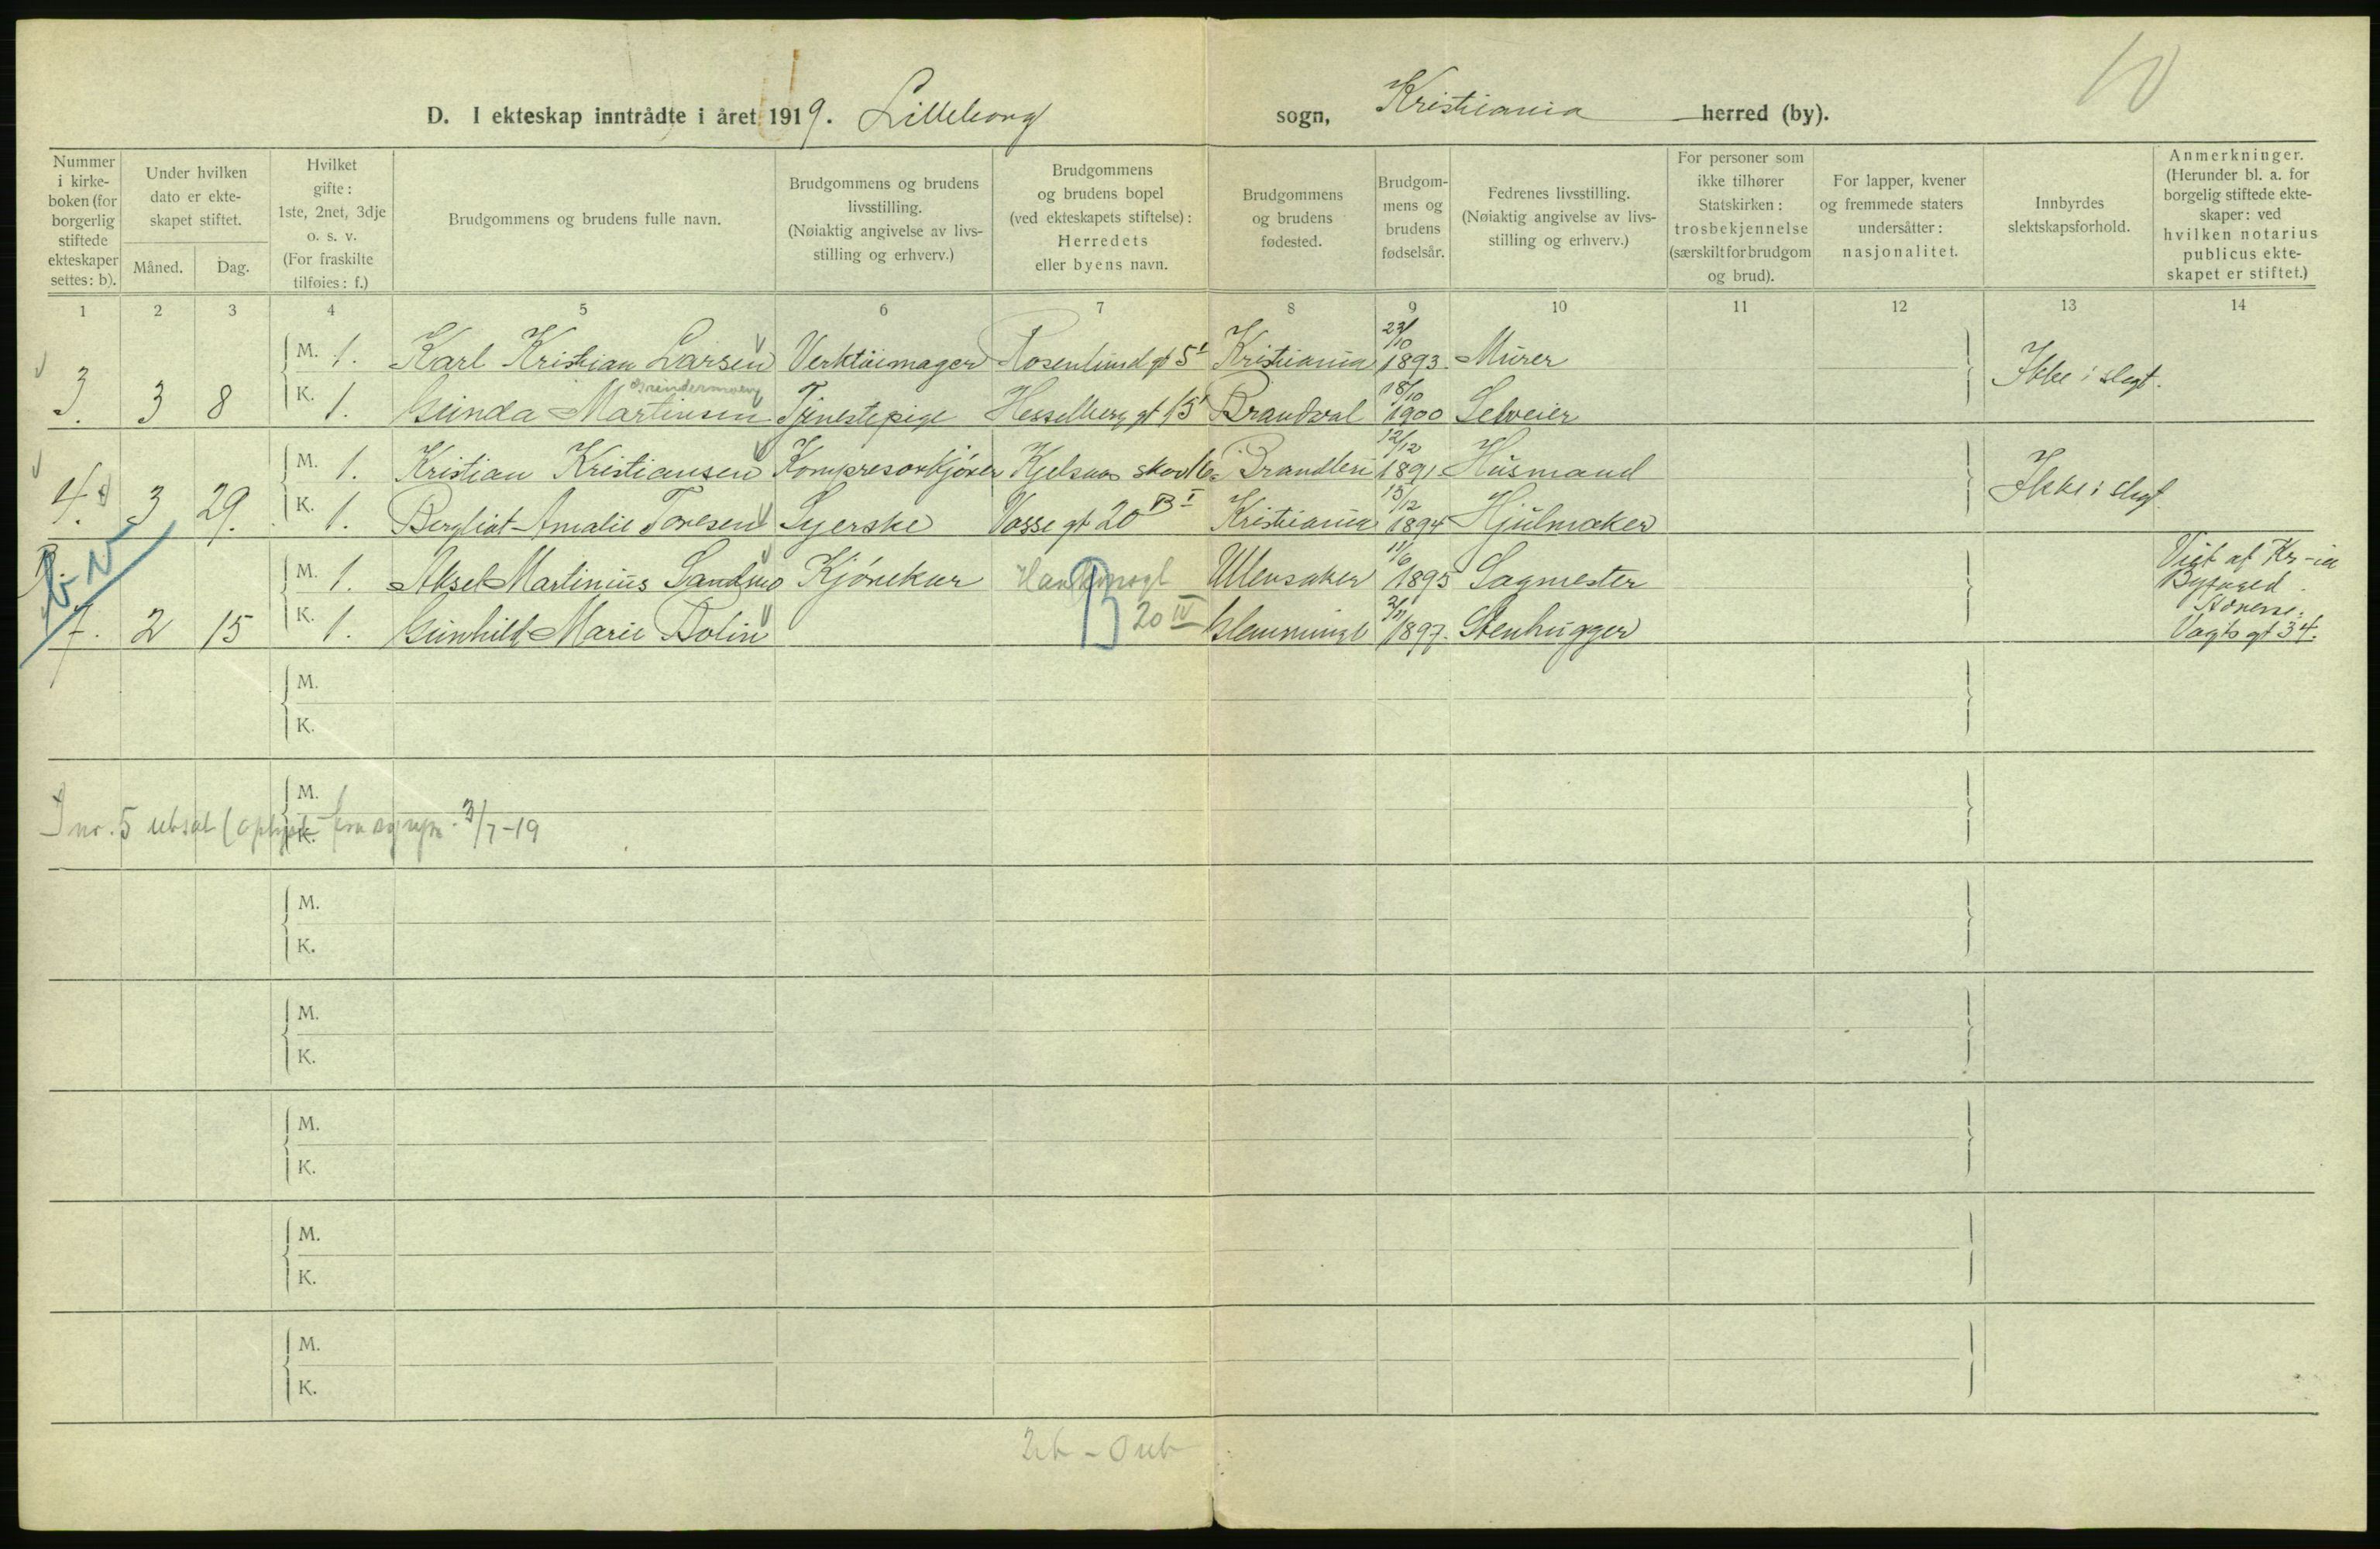 10
D. I ekteskap inntrådte i året 1919. Lilleborg sogn, Kristiania herred (by).
Nummer i kirkeboken (for borgerlig stiftede ekteskaper settes: b).
Under hvilken dato er ekteskapet stiftet.
Måned. Dag.
Hvilket gifte: 1ste, 2net, 3dje o. s. v. (For fraskilte tilføies: f.)
Brudgommens og brudens fulle navn.
Brudgommens og brudens livsstilling. (Nøiaktig angivelse av livsstilling og erhverv.)
Brudgommens og brudens bopel (ved ekteskapets stiftelse): Herredets eller byens navn.
Brudgommens og brudens fødested.
Brudgommens og brudens fødselsår.
Fedrenes livsstilling. (Nøiaktig angivelse av livsstilling og erhverv.)
For personer som ikke tilhører Statskirken: trosbekjennelse (særskilt for brudgom og brud).
For lapper, kvener og fremmede staters undersåtter: nasjonalitet.
Innbyrdes slektskapsforhold.
Anmerkninger. (Herunder bl. a. for borgelig stiftede ekteskaper: ved hvilken notarius publicus ekteskapet er stiftet.)
1 2 3 4 5 6 7 8 9 10 11 12 13 14
M. 1. Karl Kristian Larsen Verktöimager Rosenlund gt 5 Kristiania 23/10 1893. Murer
3. 3 8 K. 1. Gunda Martinsen Tjenestepige Hesselberg gt 15 Brandval 18/10 1900 Selveier Ikke i slegt.
M. 1. Kristian Kristiansen Kompresorkjörer Kjelsaas 12/12 1891 Husmand
4. 3 29. K. 1. Bergliot Amalie Toresen Syerske Vosse gt 20 B I Kristiania 15/12 1894 Hjulmaker Ikke i slegt
M. 1. Aksel Martinius Sandmo Kjörekar Ullensaker 11/6 1895 Sagmester Viet af Kr-ia Byfoged.
7. 2 15 K. 1. Gunhild Marie Bolin 20 IV Glemminge 2/11 1897. Stenhugger Vagts gt 34.
M.
K.
M.
K.
I nr. 5 utsat 3/7-19
M.
K.
M.
K.
M.
K.
M.
K.
M.
K.